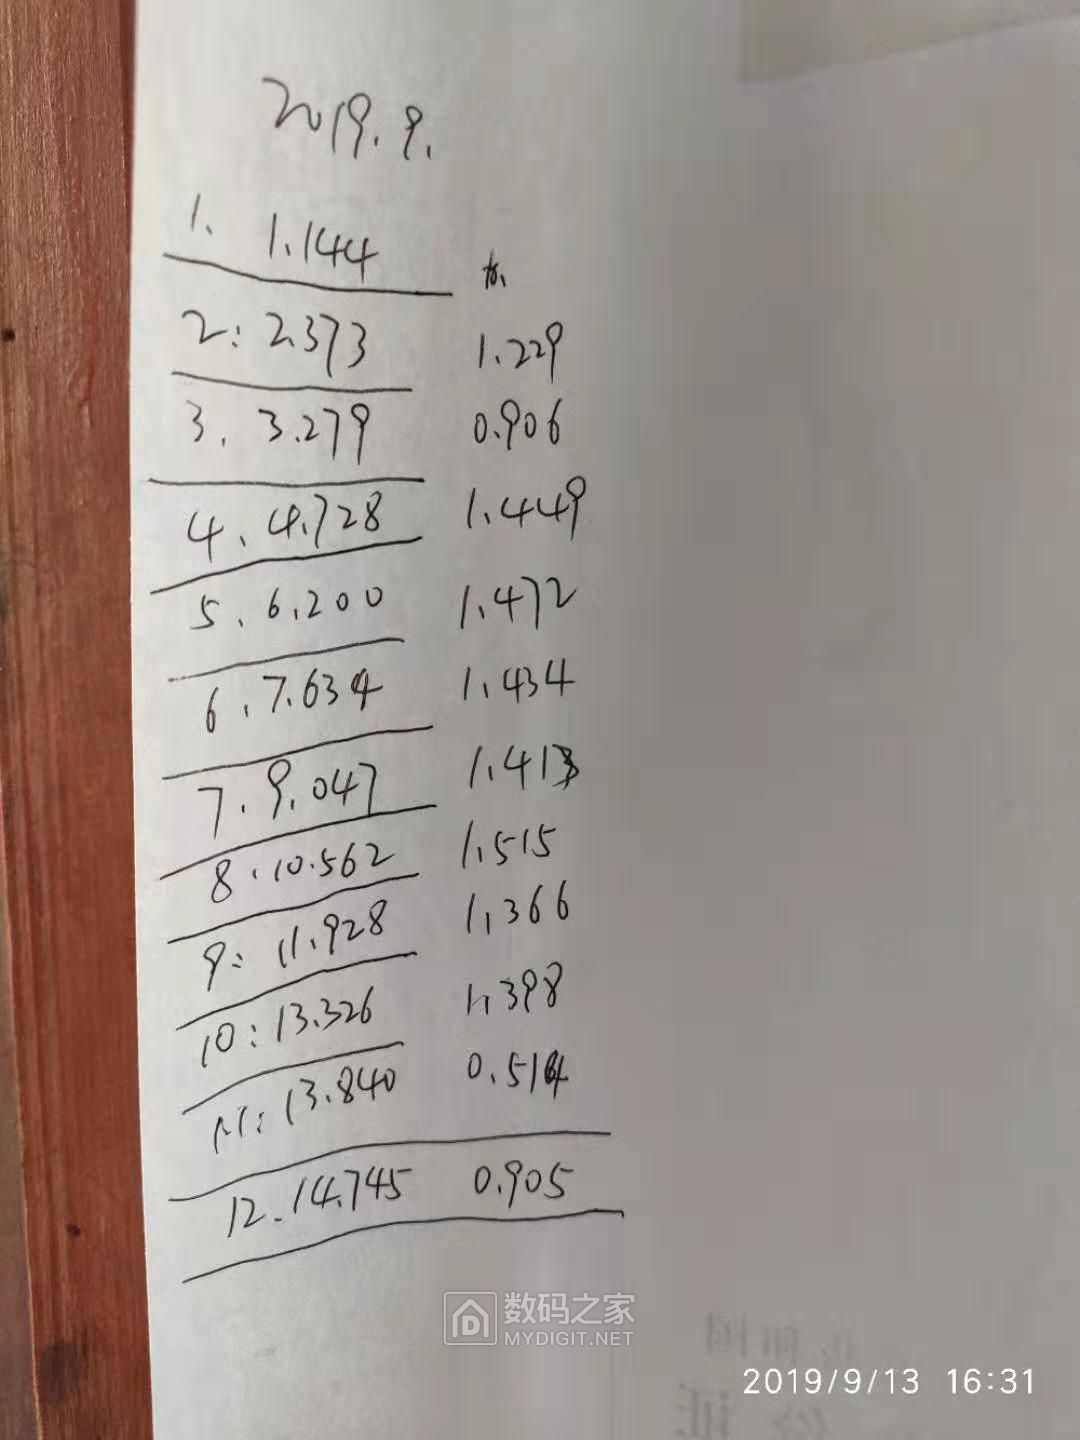 2019.9.
1. 1.144
2: 2.373 1.229
3. 3.279 0.906
4. 4.728 1.449
5. 6.200 1.472
6. 7.634 1.434
7. 9.047 1.413
8. 10.562 1.515
9: 11.928 1.366
10: 13.326 1.398
11: 13.840 0.514
12. 14.745 0.905
数码之家
MYDIGIT.NET
2019/9/13 16:31